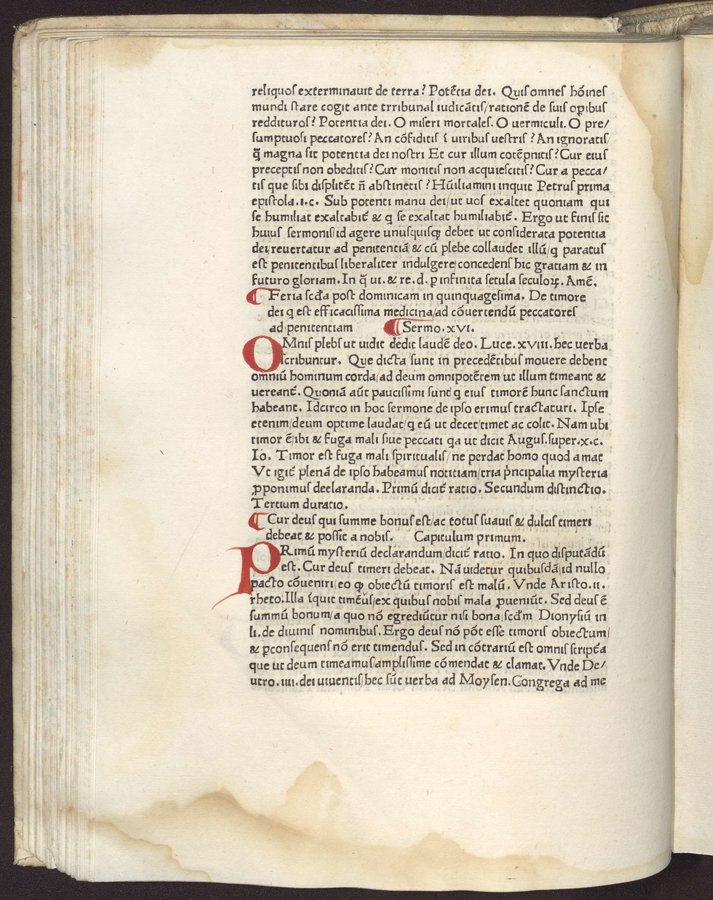 reliquos exterminauit de terra? Potētia dei. Quis omnes hōines
mundi stare cogit ante trribunal iudicātis/rationē de suis oꝑibus
reddituros? Potentia dei. O miseri mortales. O uermiculi. O pre/
sumptuosi peccatores? An cōfiditis ī uiribus uestris? An ignoratis
q̄ magna sit potentia dei nostri Et cur illum cotēpnitis? Cur eius
preceptis non obeditis? Cur monitis non acquiescitis? Cur a pecca/
tis que sibi displicēt n̄ abstinetis? Hūiliamini inquit Petrus prima
epistola.i.c. Sub potenti manu dei/ut uos exaltet quoniam qui
se humiliat exaltabit̄ & q se exaltat humiliabit̄. Ergo ut finis sit
huius sermonis/id agere unusquisqꝫ debet ut considerata potentia
dei/reuertatur ad penitentiā & cū plebe collaudet illū/q paratus
est penitentibus liberaliter indulgere/concedens hic gratiam & in
futuro gloriam. In q̄ ui. & re. d. ꝑ infinita secula seculoꝝ. Amē.
¶ Feria scd̄a post dominicam in quinquagesima. De timore
dei q est efficacissima medicina/ad cōuertendū peccatores
ad penitentiam ¶ Sermo.xvi.
OMnis plebs ut uidit dedit laudē deo. Luce.xviii. hec uerba
scribuntur. Que dicta sunt in precedētibus mouere debent
omniū hominum corda/ad deum omnipotētem ut illum timeant &
uereant̄. Quoniā aūt paucissimi sunt/q eius timorē hunc sanctum
habeant. Idcirco in hoc sermone de ipso erimus tractaturi. Ipse
etenim/deum optime laudat/q eū ut decet/timet ac colit. Nam ubi
timor ē/ibi & fuga mali siue peccati qa ut dicit Augus.super.x.c.
Io. Timor est fuga mali spiritualis/ne perdat homo quod amat
Vt igit̄ plenā de ipso habeamus notitiam/tria p̄ncipalia mysteria
ꝓponimus declaranda. Primū dicit̄ ratio. Secundum distinctio.
Tertium duratio.
¶ Cur deus qui summe bonus est/ac totus suauis & dulcis timeri
debeat & possit a nobis. Capitulum primum.
PRimū mysteriū declarandum/dicit̄ ratio. In quo disputādū
est. Cur deus timeri debeat. Nā uidetur quibusdā/id nullo
pacto cōueniri/eo ꝙ obiectū timoris est malū. Vnde Aristo.ii.
rheto. Illa īquit timēus/ex quibus nobis mala ꝓueniūt. Sed deus ē
summū bonum/a quo nō egrediūtur nisi bona/scd̄m Dionysiū in
li.de diuinis nominibus. Ergo deus nō pōt esse timoris obiectum/
& ꝑconsequens nō erit timendus. Sed in cōtrariū est omnis scriptēa
que ut deum timeamus amplissime cōmendat & clamat. Vnde De/
utro.iiii.dei uiuentis/hec sūt uerba ad Moysen. Congrega ad me